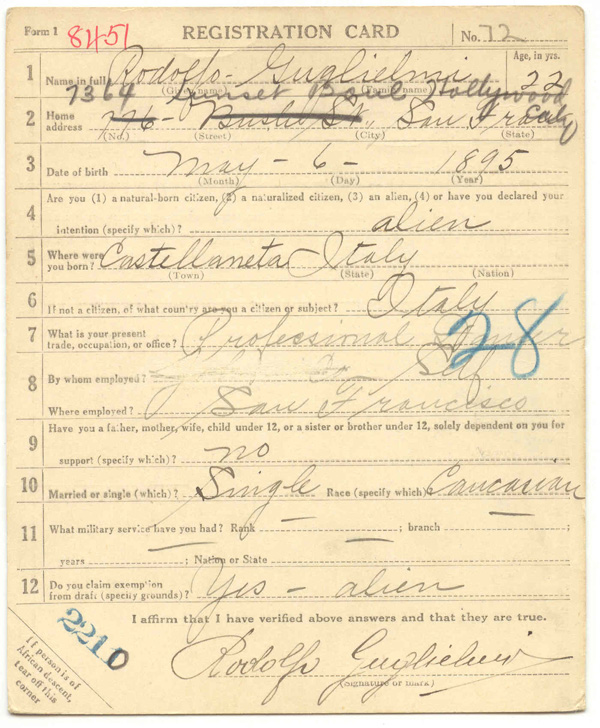 Form 1 8451 REGISTRATION CARD No. 72
1 Name in full Rodolfo - Guglielmi Age, in yrs. 22
(Given name) (Family name)
7364 Sunset Boul Hollywood
2 Home address 776 - Bush St., San Fran Cal
(No.) (Street) (City) (State)
3 Date of birth May - 6 - 1895
(Month) (Day) (Year)
4 Are you (1) a natural-born citizen, (2) a naturalized citizen, (3) an alien, (4) or have you declared your
intention (specify which)? alien
5 Where were you born? Castellaneta Italy
(Town) (State) (Nation)
6 If not a citizen, of what country are you a citizen or subject? Italy
7 What is your present trade, occupation, or office? Professional Dancer 28
8 By whom employed? Self
Where employed? San Francisco
9 Have you a father, mother, wife, child under 12, or a sister or brother under 12, solely dependent on you for
support (specify which)? no
10 Married or single (which)? Single Race (specify which)? Caucasian
11 What military service have you had? Rank — ; branch — ;
years — ; Nation or State —
12 Do you claim exemption from draft (specify grounds)? Yes - alien
I affirm that I have verified above answers and that they are true.
2210
Rodolfo Guglielmi
(Signature or mark)
If person is of
African descent,
tear off this
corner